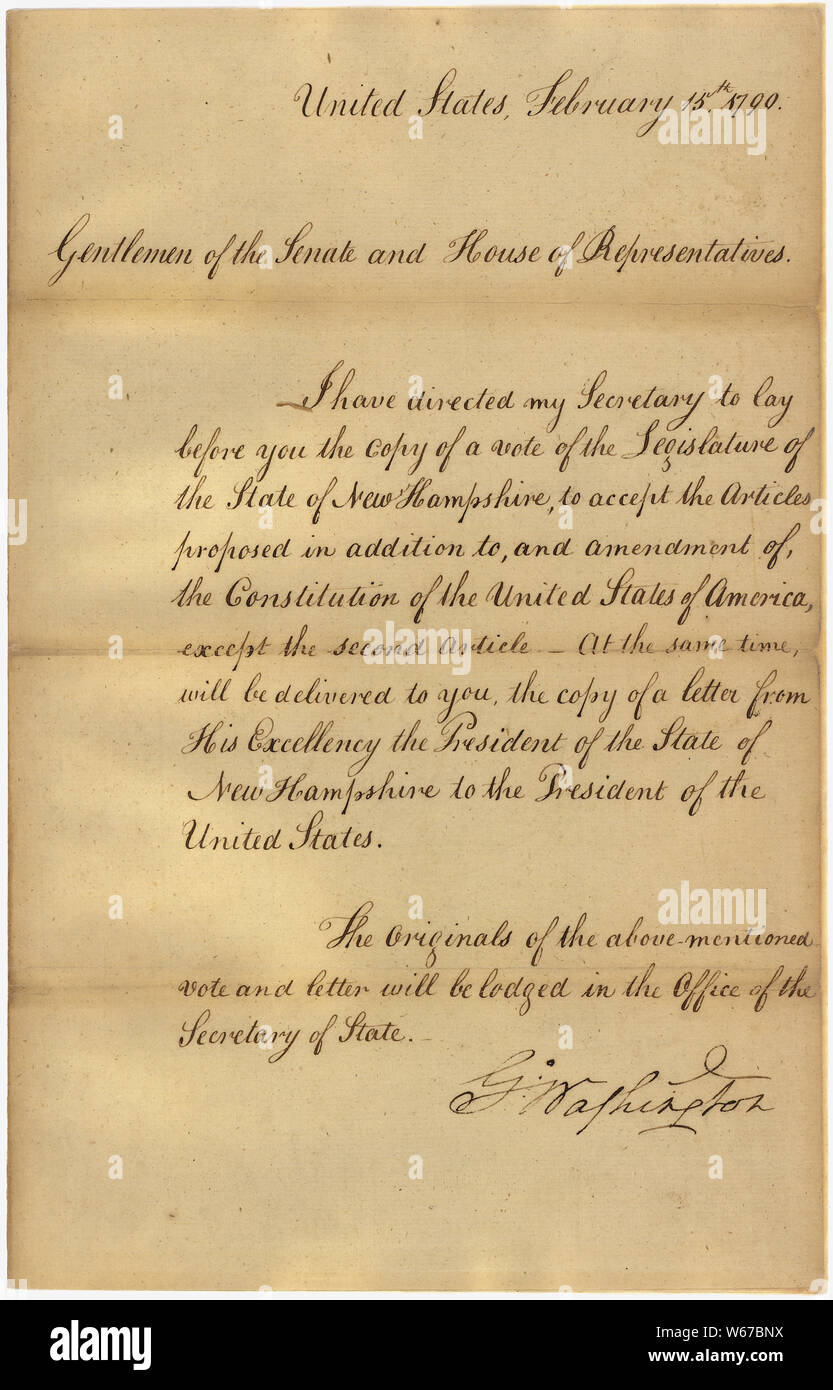 United States, February 15.th 1790.
Gentlemen of the Senate and House of Representatives.
I have directed my Secretary to lay
before you the copy of a vote of the Legislature of
the State of New Hampshire, to accept the Articles
proposed in addition to, and amendment of,
the Constitution of the United States of America,
except the second Article — At the same time,
will be delivered to you, the copy of a letter from
His Excellency the President of the State of
New Hampshire to the President of the
United States.
The originals of the above-mentioned
vote and letter will be lodged in the Office of the
Secretary of State. —
G. Washington
a alamy
a
alamy
Image ID: W67BNX
www.alamy.com